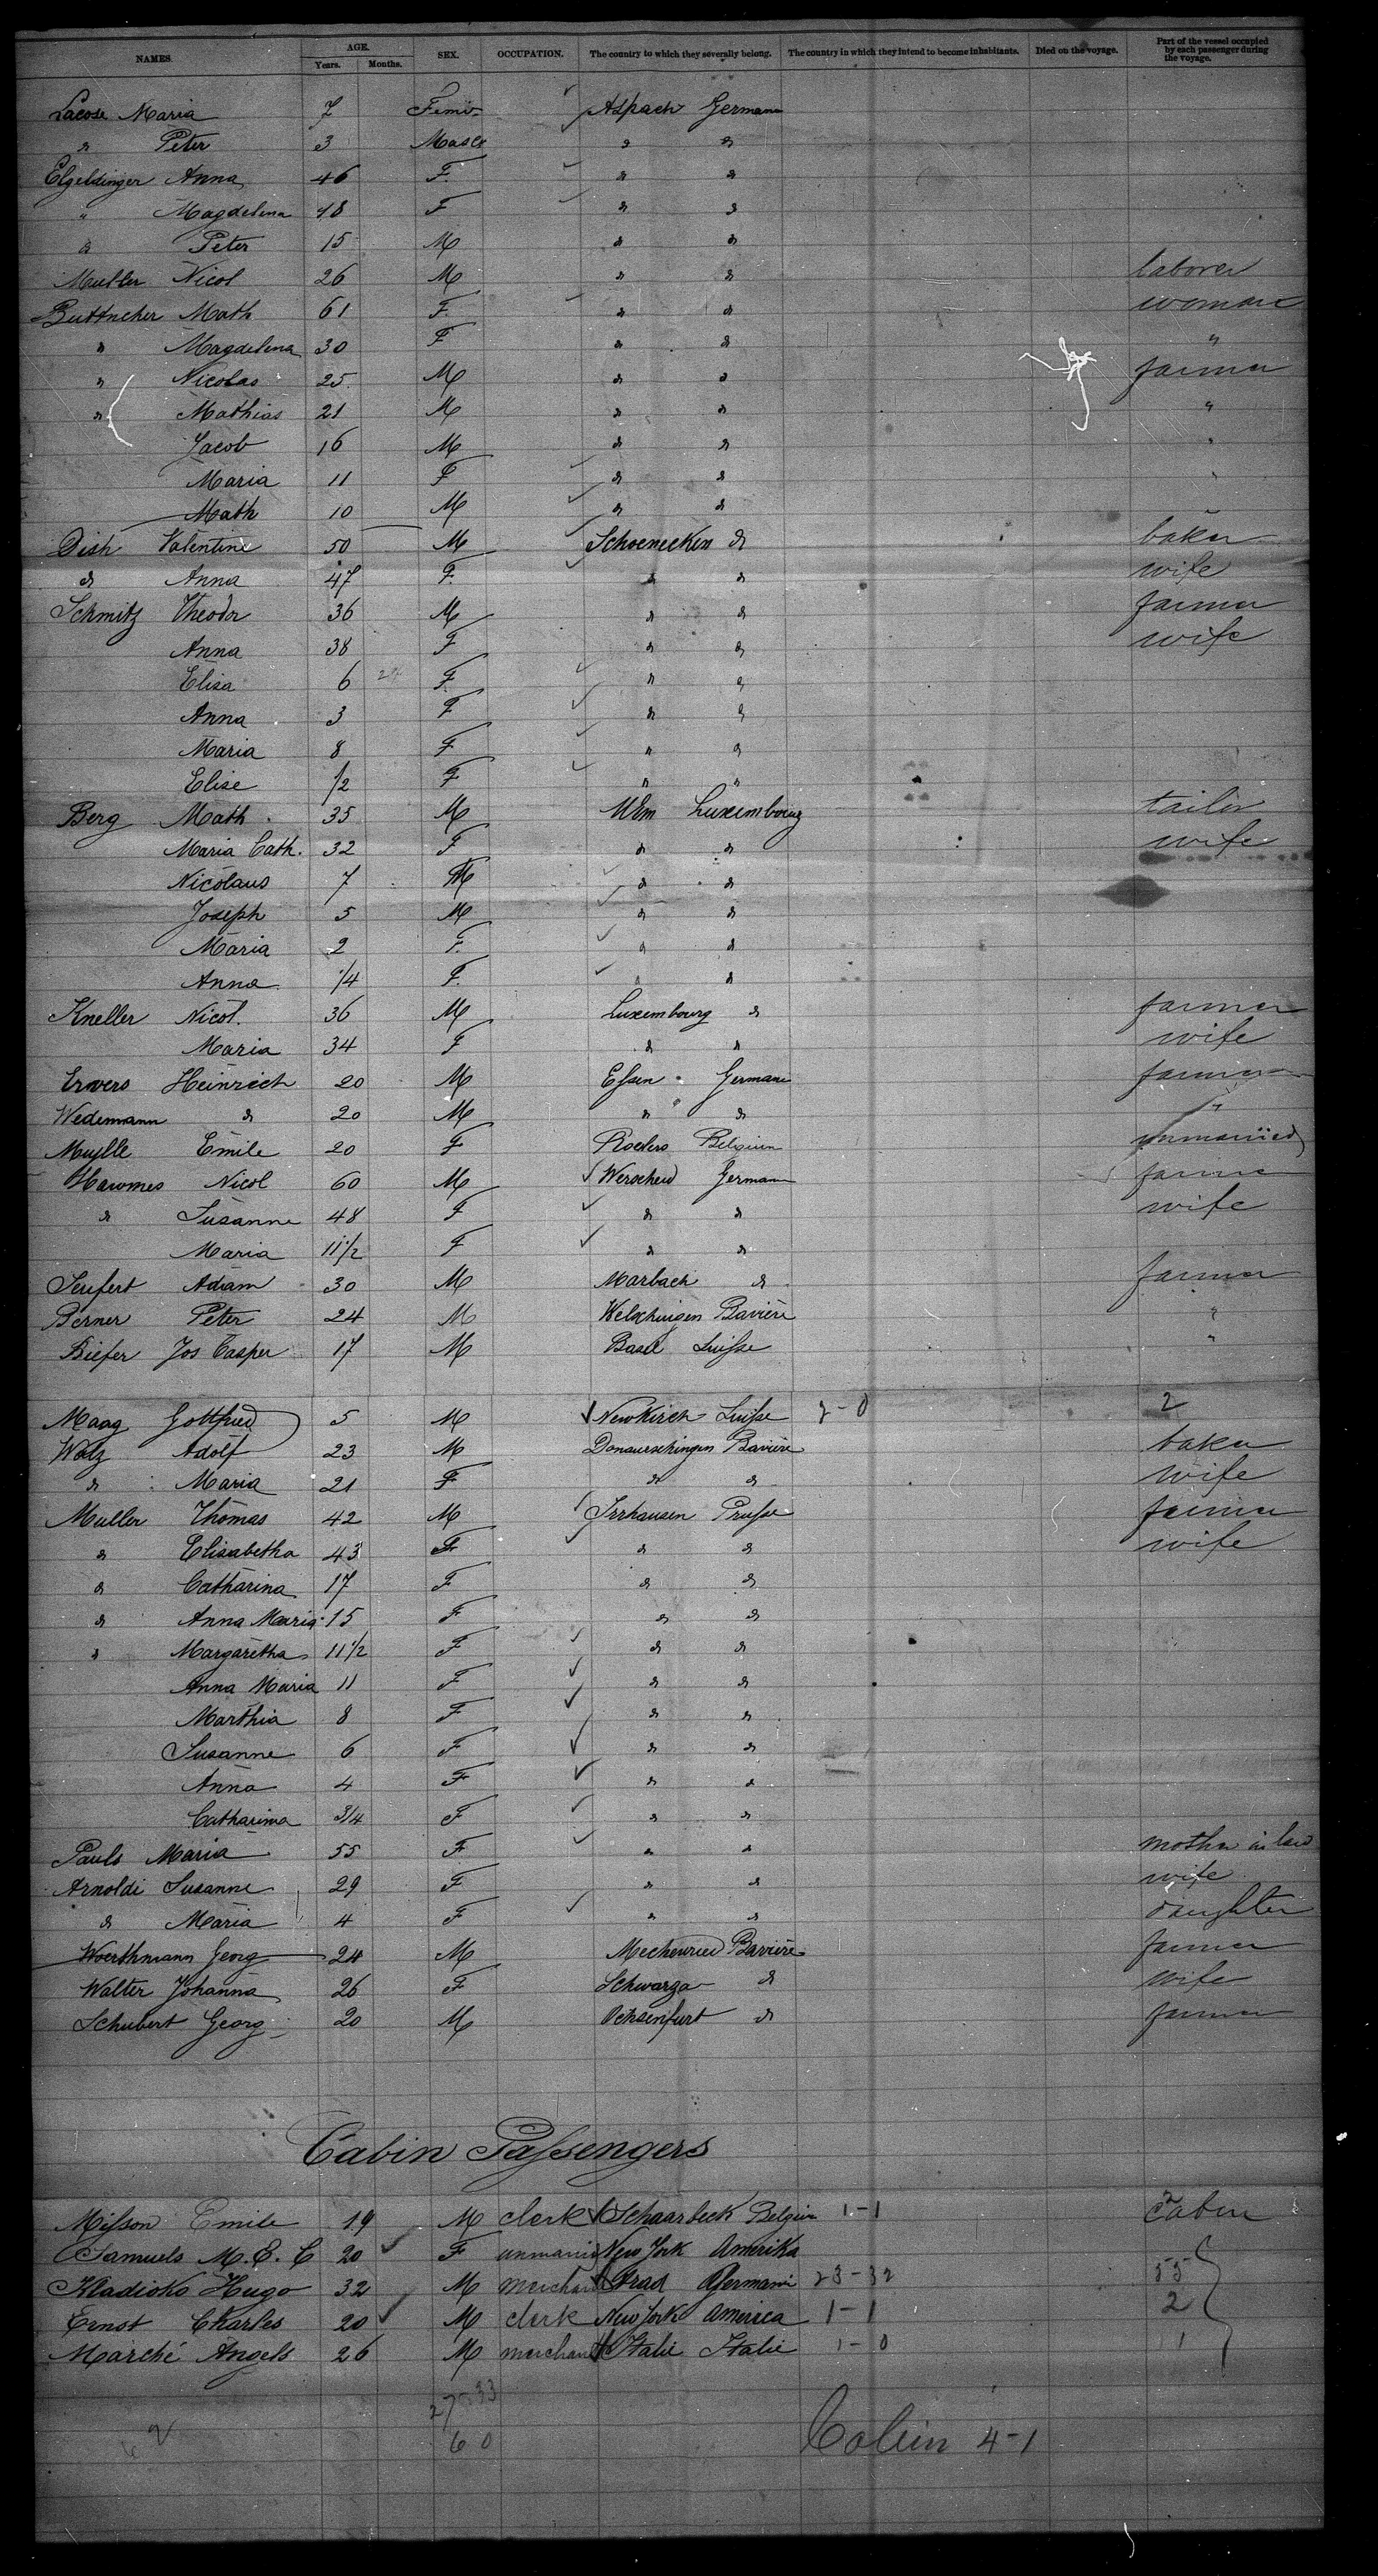 NAMES. AGE. Years. Months. SEX. OCCUPATION. The country to which they severally belong. The country in which they intend to become inhabitants. Died on the voyage. Part of the vessel occupied by each passenger during the voyage.
Lacose Maria 7 Femi Aspach German
" Peter 3 Masc " "
Elgeldinger Anna 46 F. " "
" Magdelena 18 F " "
" Peter 15 M " "
Muller Nicol 26 M " " laborer
Buttncher Math 61 F. " " woman
" Magdelena 30 F " " "
" Nicolas 25. M " " farmer
" Mathias 21 M " " "
Jacob 16 M " " "
Maria 11 F " " "
Math 10 M " "
Dish Valentine 50 M Schoenecken " baker
" Anna 47 F. " " wife
Schmitz Theodor 36 M " " farmer
Anna 38 F " " wife
Elisa 6 F. " "
Anna 3 F " "
Maria 8 F " "
Elise 1/2 F " "
Berg Math. 35 M Luxembourg tailor
Maria Cath. 32 F " " wife
Nicolaus 7 M " "
Joseph 5 M " "
Maria 2 F. " "
Anna 1/4 F. " "
Kneller Nicol. 36 M Luxembourg " farmer
Maria 34 F " " wife
Ervers Heinrich 20 M Essen German farmer
Wedemann " 20 M " " "
Muylle Emile 20 F Belgien unmarried
Hawmes Nicol 60 M Werscheid German farmer
" Susanne 48 F " " wife
Maria 11 1/2 F " "
Seufert Adam 30 M Marbach " farmer
Berner Peter 24 M Welschingen Bavière "
Biefer Jos Casper 17 M Basel Suisse "
Maag Gottfried 5 M Newkirch Suisse 2-0 2
Walz Adolf 23 M Donaueschingen Bavière baker
" Maria 21 F " " wife
Muller Thomas 42 M Irrhausen Prusse farmer
" Elisabetha 43 F " " wife
" Catharina 17 F " "
" Anna Maria 15 F " "
" Margaretha 11 1/2 F " "
Anna Maria 11 F " "
Marthia 8 F " "
Susanne 6 F " "
Anna 4 F " "
Catharina 3/4 F " "
Pauls Maria 55 F " " mother in law
Arnoldi Susanne 29 F " " wife
" Maria 4 F " " daughter
Woerthmann Georg 24 M Mechenried Bavière farmer
Walter Johanna 26 F Schwarza " wife
Schubert Georg 20 M Ochsenfurt " farmer
Cabin Passengers
Misson Emile 19 M clerk Schaarbeck Belgien 1-1 2 Cabin
Samuels M. E. C 20 F unmarried New York Amerika
Kladioko Hugo 32 M merchant Germani 23-32 55
Ernst Charles 20 M clerk New York America 1-1 2
Marché Angels 26 M merchant Italie Italie 1-0 1
27-33
60 Cabin 4-1